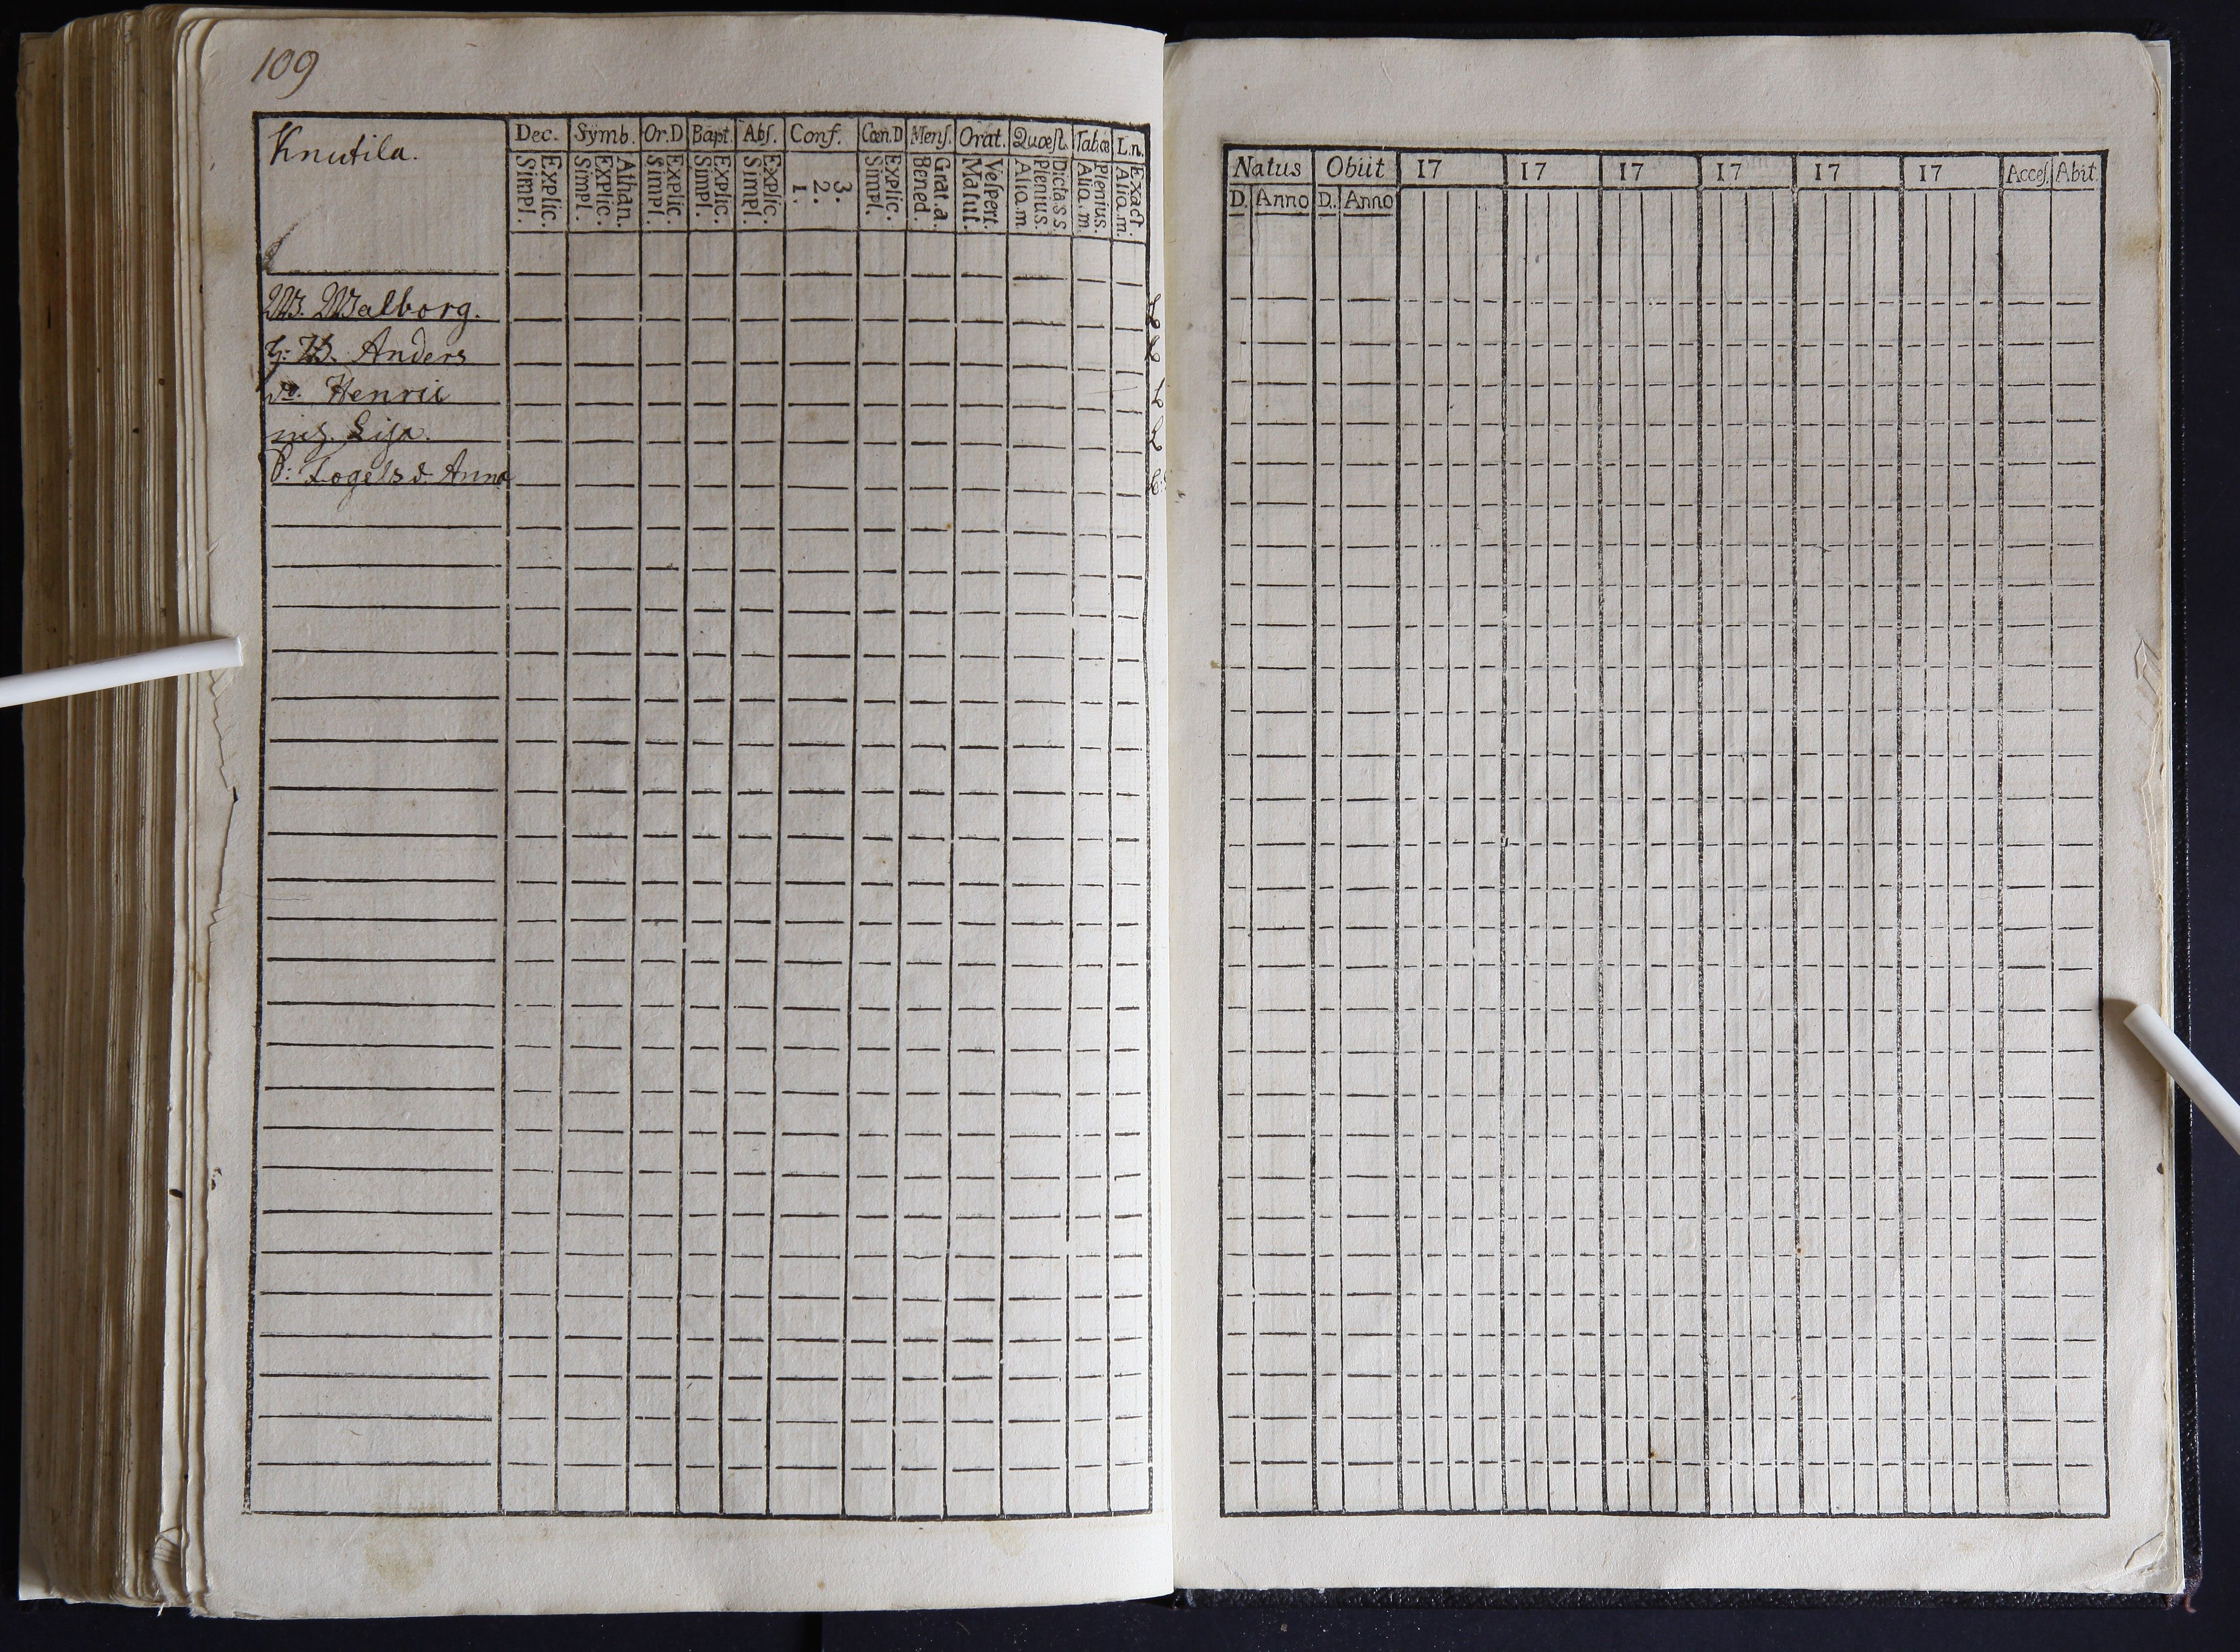 109
Knutila.
Dec. Symb. Or.D Bapt. Abs. Conf. Cœn.D Mens. Orat. Quæst. Tabœ L.n.
Explic. Simpl. Athan. Explic. Simpl. Explic. Simpl. Explic. Simpl. Explic. Simpl. 3. 2. 1. Explic. Simpl. Grat.a. Bened. Vespert. Matut. Dicta s s Plenius. Aliq.m Plenius. Aliq.m. Exact. Aliq.m.
W. Walborg.
Anders
do. Henric
Lisa.
Anna
Natus Obiit 17 17 17 17 17 17 Acces. Abit.
D. Anno D. Anno